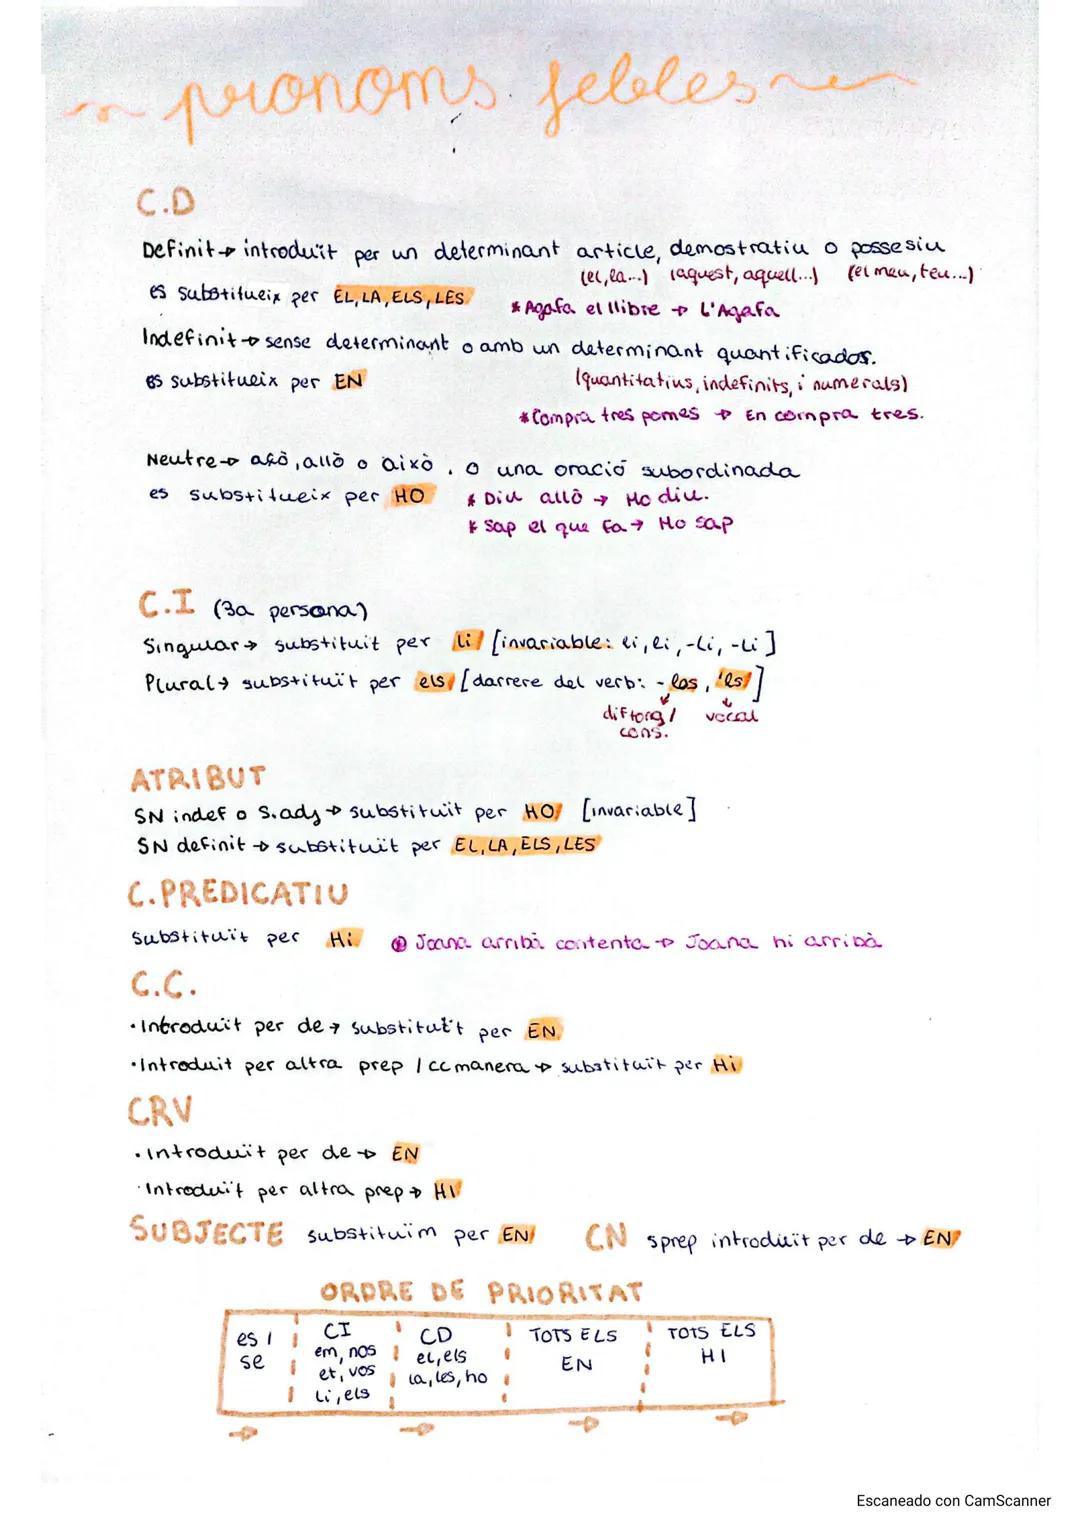 pronoms febles
C.D
Definit → introduït per un determinant article, demostratiu o possesiu
(el, la...) (aquest, aquell...) (el meu, teu...)
es substitueix per EL, LA, ELS, LES
* Agafa el llibre → L'Agafa
Indefinit → sense determinant o amb un determinant quantificados.
es substitueix per EN
(quantitatius, indefinits, i numerals)
* Compra tres pomes → En compra tres.
Neutre → això, allò o això, o una oració subordinada
es substitueix per HO
* Diu allò → Ho diu.
* Sap el que fa → Ho sap
C.I (3a persona)
Singular → substituit per li [invariable: li, li, -li, -li]
Plural → substituït per els [darrere del verb: -los, 'ls]
diftong/ vocal
cons.
ATRIBUT
SN indef o S.adj → substituït per HO [invariable]
SN definit → substituït per EL, LA, ELS, LES
C.PREDICATIU
Substituït per Hi
Joana arribà contenta → Joana hi arribà
C.C.
· Introduït per de → substituït per EN
· Introduit per altra prep / cc manera → substituït per Hi
CRV
· Introduït per de → EN
· Introduït per altra prep → HI
SUBJECTE substituïm per EN
CN sprep introduït per de → EN
ORDRE DE PRIORITAT
es /
se
CI
em, nos
et, vos
li, els
CD
el, els
la, les, ho
TOTS ELS
EN
TOTS ELS
HI
Escaneado con CamScanner